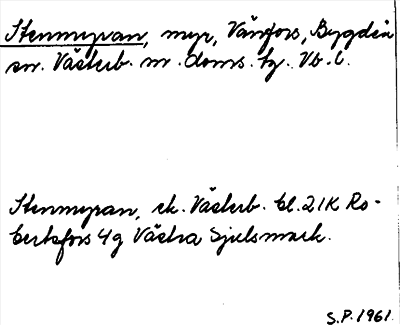 Stenmyran, myr, Vänfors, Bygdeå
sn. Västerb. n. doms. tg. Vb. l.
Stenmyran, ek. Västerb. bl. 21K Ro-
bertsfors 4g Västra Sjulsmark.
S.P. 1961